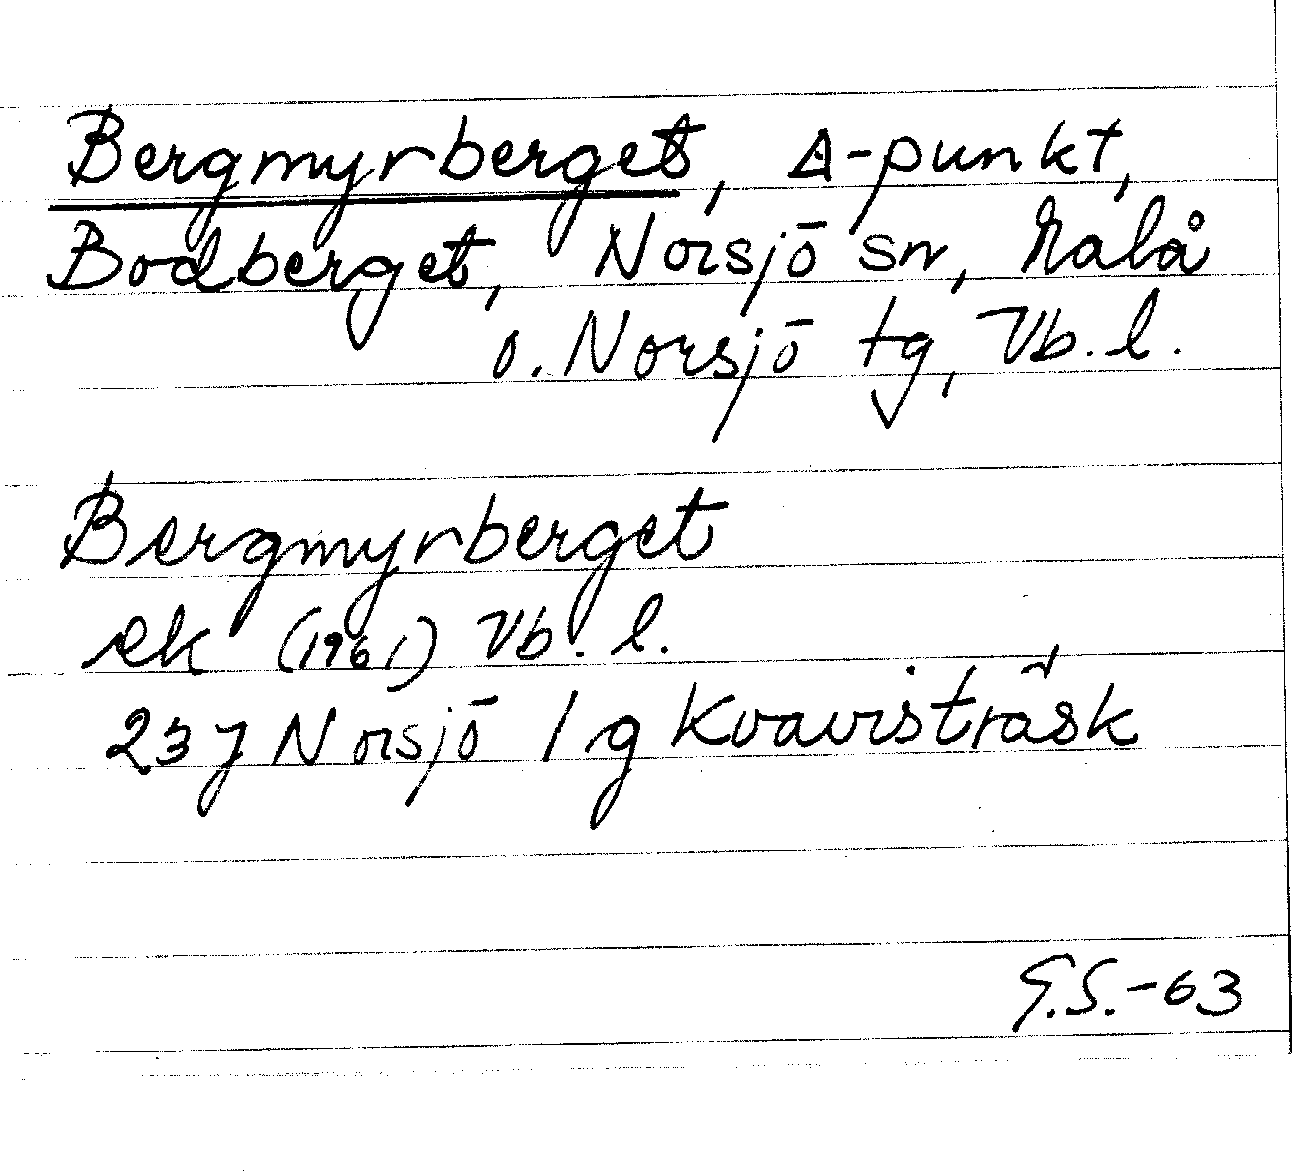 Bergmyrberget, Δ-punkt,
Bodberget, Norsjö sn, Malå
o. Norsjö tg, Vb. l.
Bergmyrberget
ek (1961) Vb. l.
23 J Norsjö 1 g Kvavisträsk
G.S.-63